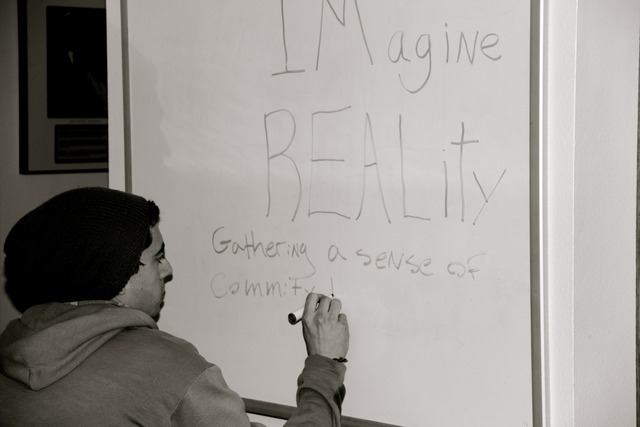 IMagine
REALity
Gathering a sense of
Commity!